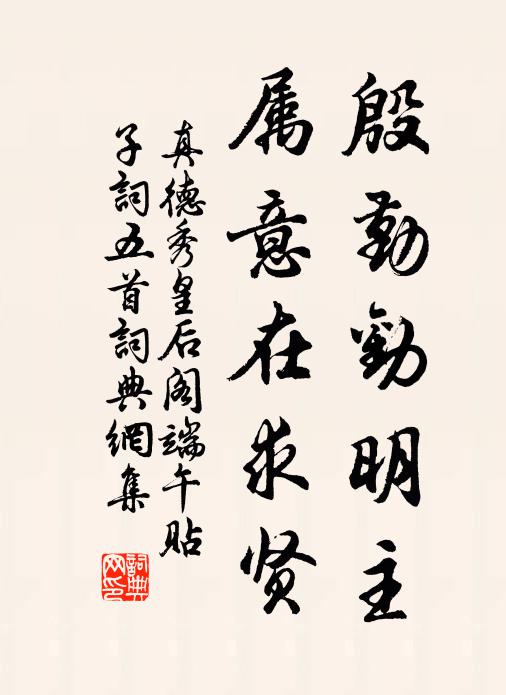 殷勤勸明主
属意在求贤
真德秀皇后阁端午貼
子詞五首詞典網集
詞典网印